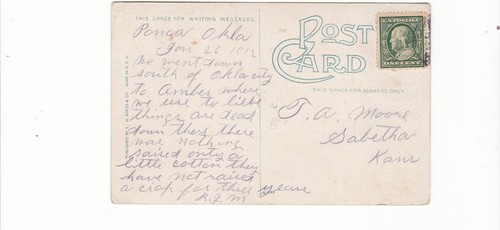 THIS SPACE FOR WRITING MESSAGES
Ponca Okla
Jan 26 1912
we went down
south of Okla city
to Amber where
we use to liebe
things are dead
down there there
was nothing
raised only a
little cotton they
have not raised
a crop for three years
R.J.M
POST
CARD
THIS SPACE FOR ADDRESS ONLY
U.S. POSTAGE
ONE CENT
T. A. Moore
Sabetha
Kans